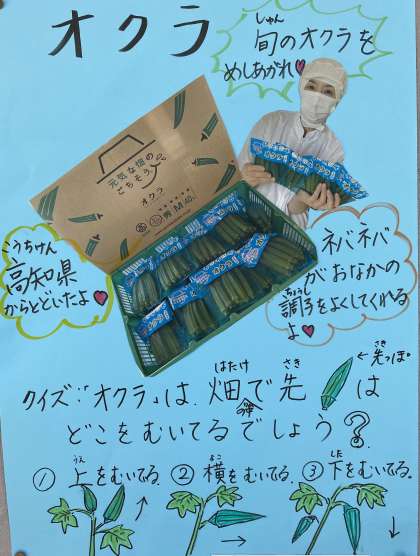 オクラ
しゅん
旬のオクラを
めしあがれ♥
元気な畑の
ごちそう。
オクラ
こうちけん
高知県
からとどいたよ♥
ネバネバ
がおなかの
ちょうし
調子をよくしてくれる
よ♥
←先っぽ
さき
クイズ:「オクラ」は、畑で先は
はたけ さき
どこをむいてるでしょう?
①上をむいてる。 ②横をむいてる。 ③下をむいてる。
うえ よこ した